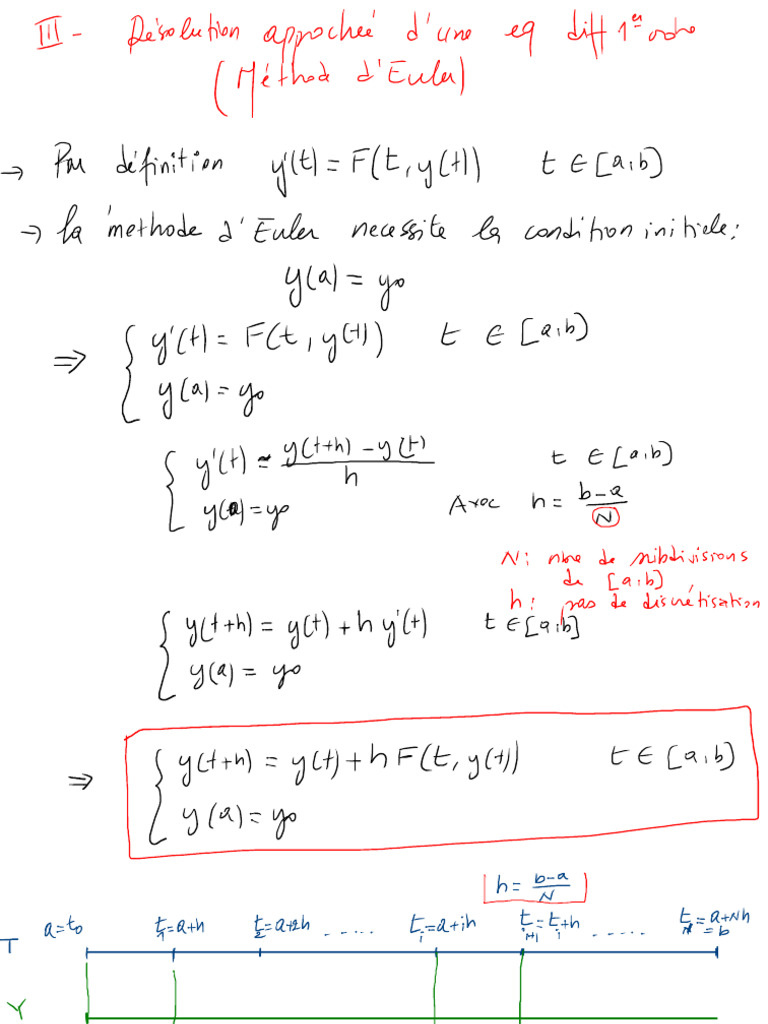 III - Résolution approchée d'une eq diff 1er ordre
(Méthode d'Euler)
→ Par définition y'(t) = F(t, y(t)) t ∈ [a,b]
→ La méthode d'Euler necessite la condition initiele :
y(a) = y₀
⇒ { y'(t) = F(t, y(t)) t ∈ [a,b]
y(a) = y₀
{ y'(t) ≃ (y(t+h) - y(t)) / h t ∈ [a,b]
y(a) = y₀ Avec h = (b-a)/N
N : nbre de subdivisions
de [a,b]
h : pas de discrétisation
{ y(t+h) = y(t) + h y'(t) t ∈ [a,b]
y(a) = y₀
⇒ { y(t+h) = y(t) + h F(t, y(t)) t ∈ [a,b]
y(a) = y₀
h = (b-a)/N
a = t₀ t₁ = a+h t₂ = a+2h ..... tᵢ = a+ih tᵢ₊₁ = tᵢ+h ..... t_N = a+Nh = b
T
Y